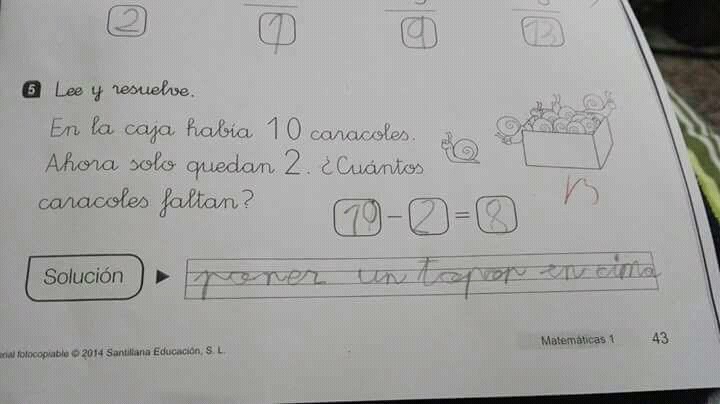 2 7 9 13
5 Lee y resuelve.
En la caja había 10 caracoles.
Ahora solo quedan 2. ¿Cuántos
caracoles faltan?
10 - 2 = 8
B
Solución ▶ poner un tapon en cima
rial fotocopiable © 2014 Santillana Educación, S. L.
Matemáticas 1 43